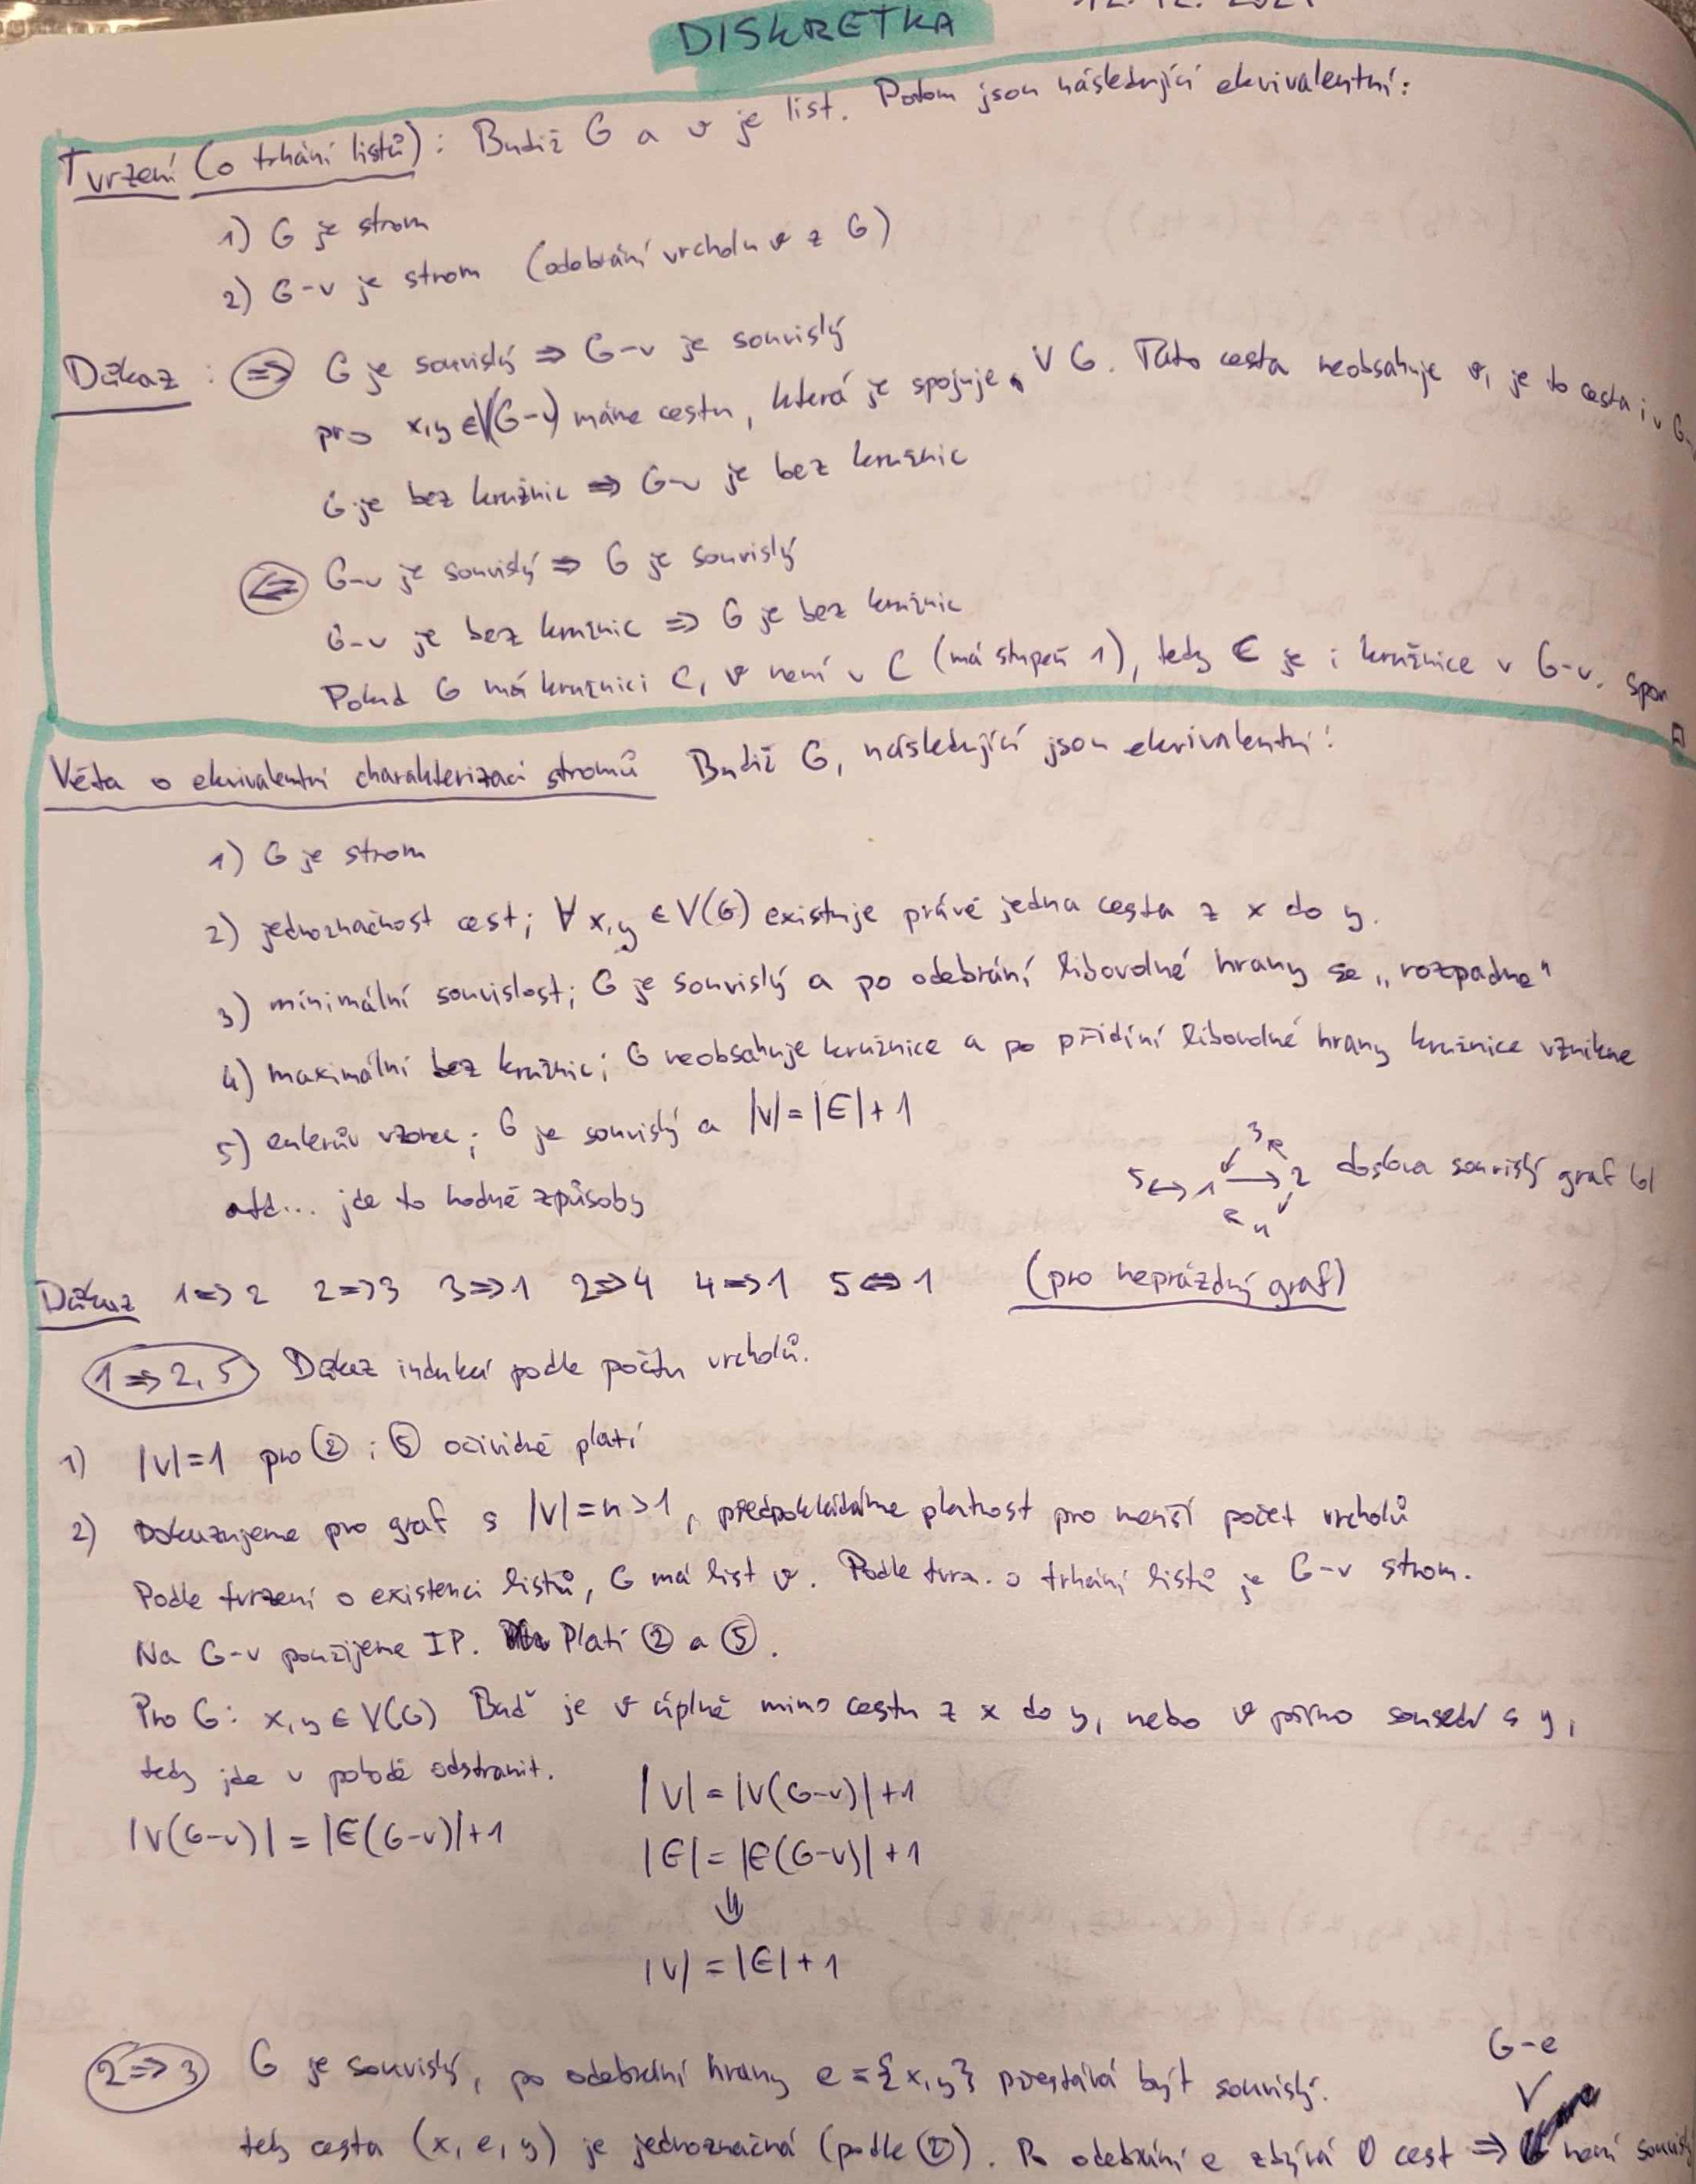 DISKRETKA
Tvrzení (o trhání listů): Budiž G a v je list. Potom jsou následující ekvivalentní:
1) G je strom
2) G-v je strom (odebrání vrcholu v z G)
Důkaz: ⇒ G je souvislý ⇒ G-v je souvislý
pro x,y ∈V(G-v) máme cestu, která je spojuje v G. Tato cesta neobsahuje v, je to cesta i v G-
G je bez kružnic ⇒ G-v je bez kružnic
⇐ G-v je souvislý ⇒ G je souvislý
G-v je bez kružnic ⇒ G je bez kružnic
Pokud G má kružnici C, v není v C (má stupeň 1), tedy C je i kružnice v G-v. Spor
Věta o ekvivalentní charakterizaci stromů Budiž G, následující jsou ekvivalentní:
1) G je strom
2) jednoznačnost cest; ∀ x,y ∈ V(G) existuje právě jedna cesta z x do y.
3) minimální souvislost; G je souvislý a po odebrání libovolné hrany se „rozpadne"
4) maximální bez kružnic; G neobsahuje kružnice a po přidání libovolné hrany kružnice vznikne
5) eulerův vzorec; G je souvislý a |V|=|E|+1
atd... jde to hodně způsoby
3
5 ↔ 1 → 2 doslova souvislý graf lol
4
Důkaz 1⇒2 2⇒3 3⇒1 2⇒4 4⇒1 5⇔1 (pro neprázdný graf)
1⇒2,5 Důkaz indukcí podle počtu vrcholů.
1) |V|=1 pro ② i ⑤ očividně platí
2) Dokazujeme pro graf s |V|=n>1, předpokládáme platnost pro menší počet vrcholů
Podle tvrzení o existenci listů, G má list v. Podle tvrz. o trhání listů je G-v strom.
Na G-v použijeme IP. Platí ② a ⑤.
Pro G: x,y ∈ V(G) Buď je v úplně mimo cestu z x do y, nebo v přímo sousedí s y,
tedy jde v pohodě odstranit.
|V|=|V(G-v)|+1
|V(G-v)|=|E(G-v)|+1
|E|=|E(G-v)|+1
⇓
|V|=|E|+1
G-e
2⇒3 G je souvislý, po odebrání hrany e={x,y} přestává být souvislý.
tedy cesta (x,e,y) je jednoznačná (podle ②). Po odebrání e zbývá 0 cest ⇒ není souvislý